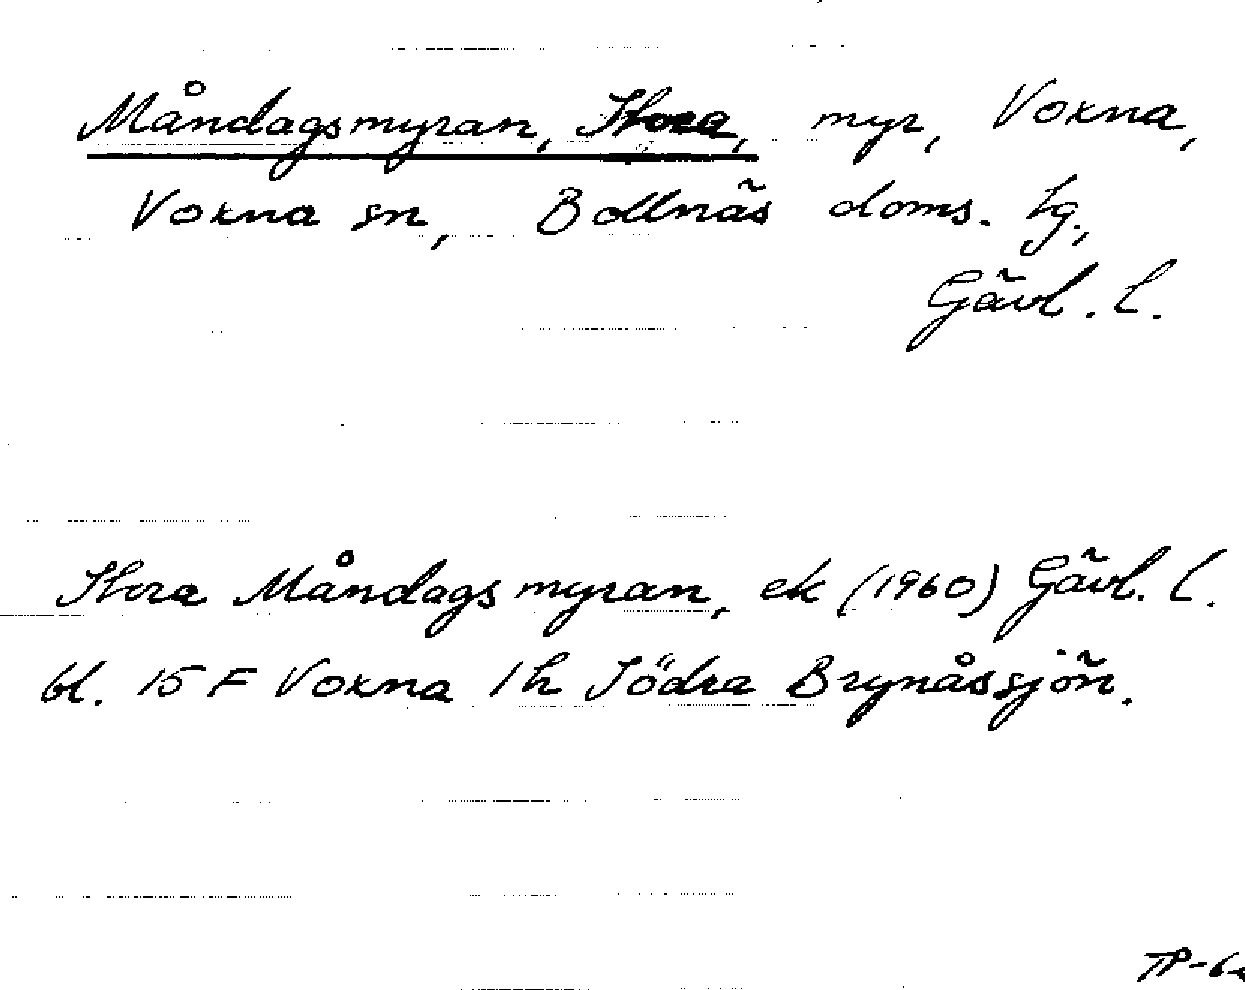 Måndagsmyran, Stora, myr, Voxna,
Voxna sn, Bollnäs doms. tg,
Gävl. l.
Stora Måndagsmyran, ek (1960) Gävl. l.
bl. 15 F Voxna 1h Södra Brynåssjön.